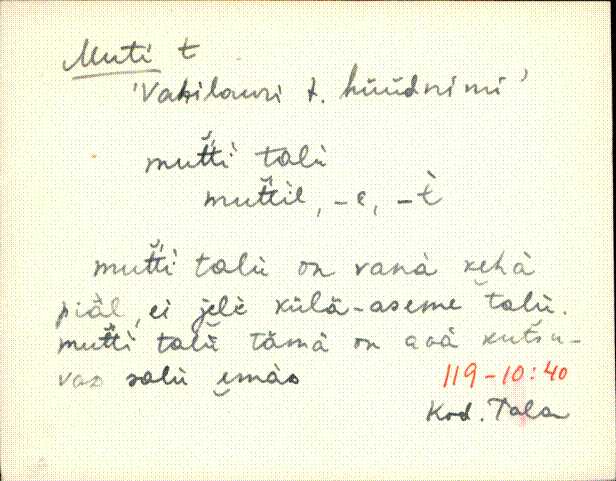 Muti t
'Vahilauri t. hüüdnimi'
mutti talù
muttil, -e, -t̀
mutti talù on vanà kehà
piäl, ei jelè külä-aseme talù.
mutti talù tämä on avà kutsu-
vao salù emäo
119-10:40
Kod. Tala